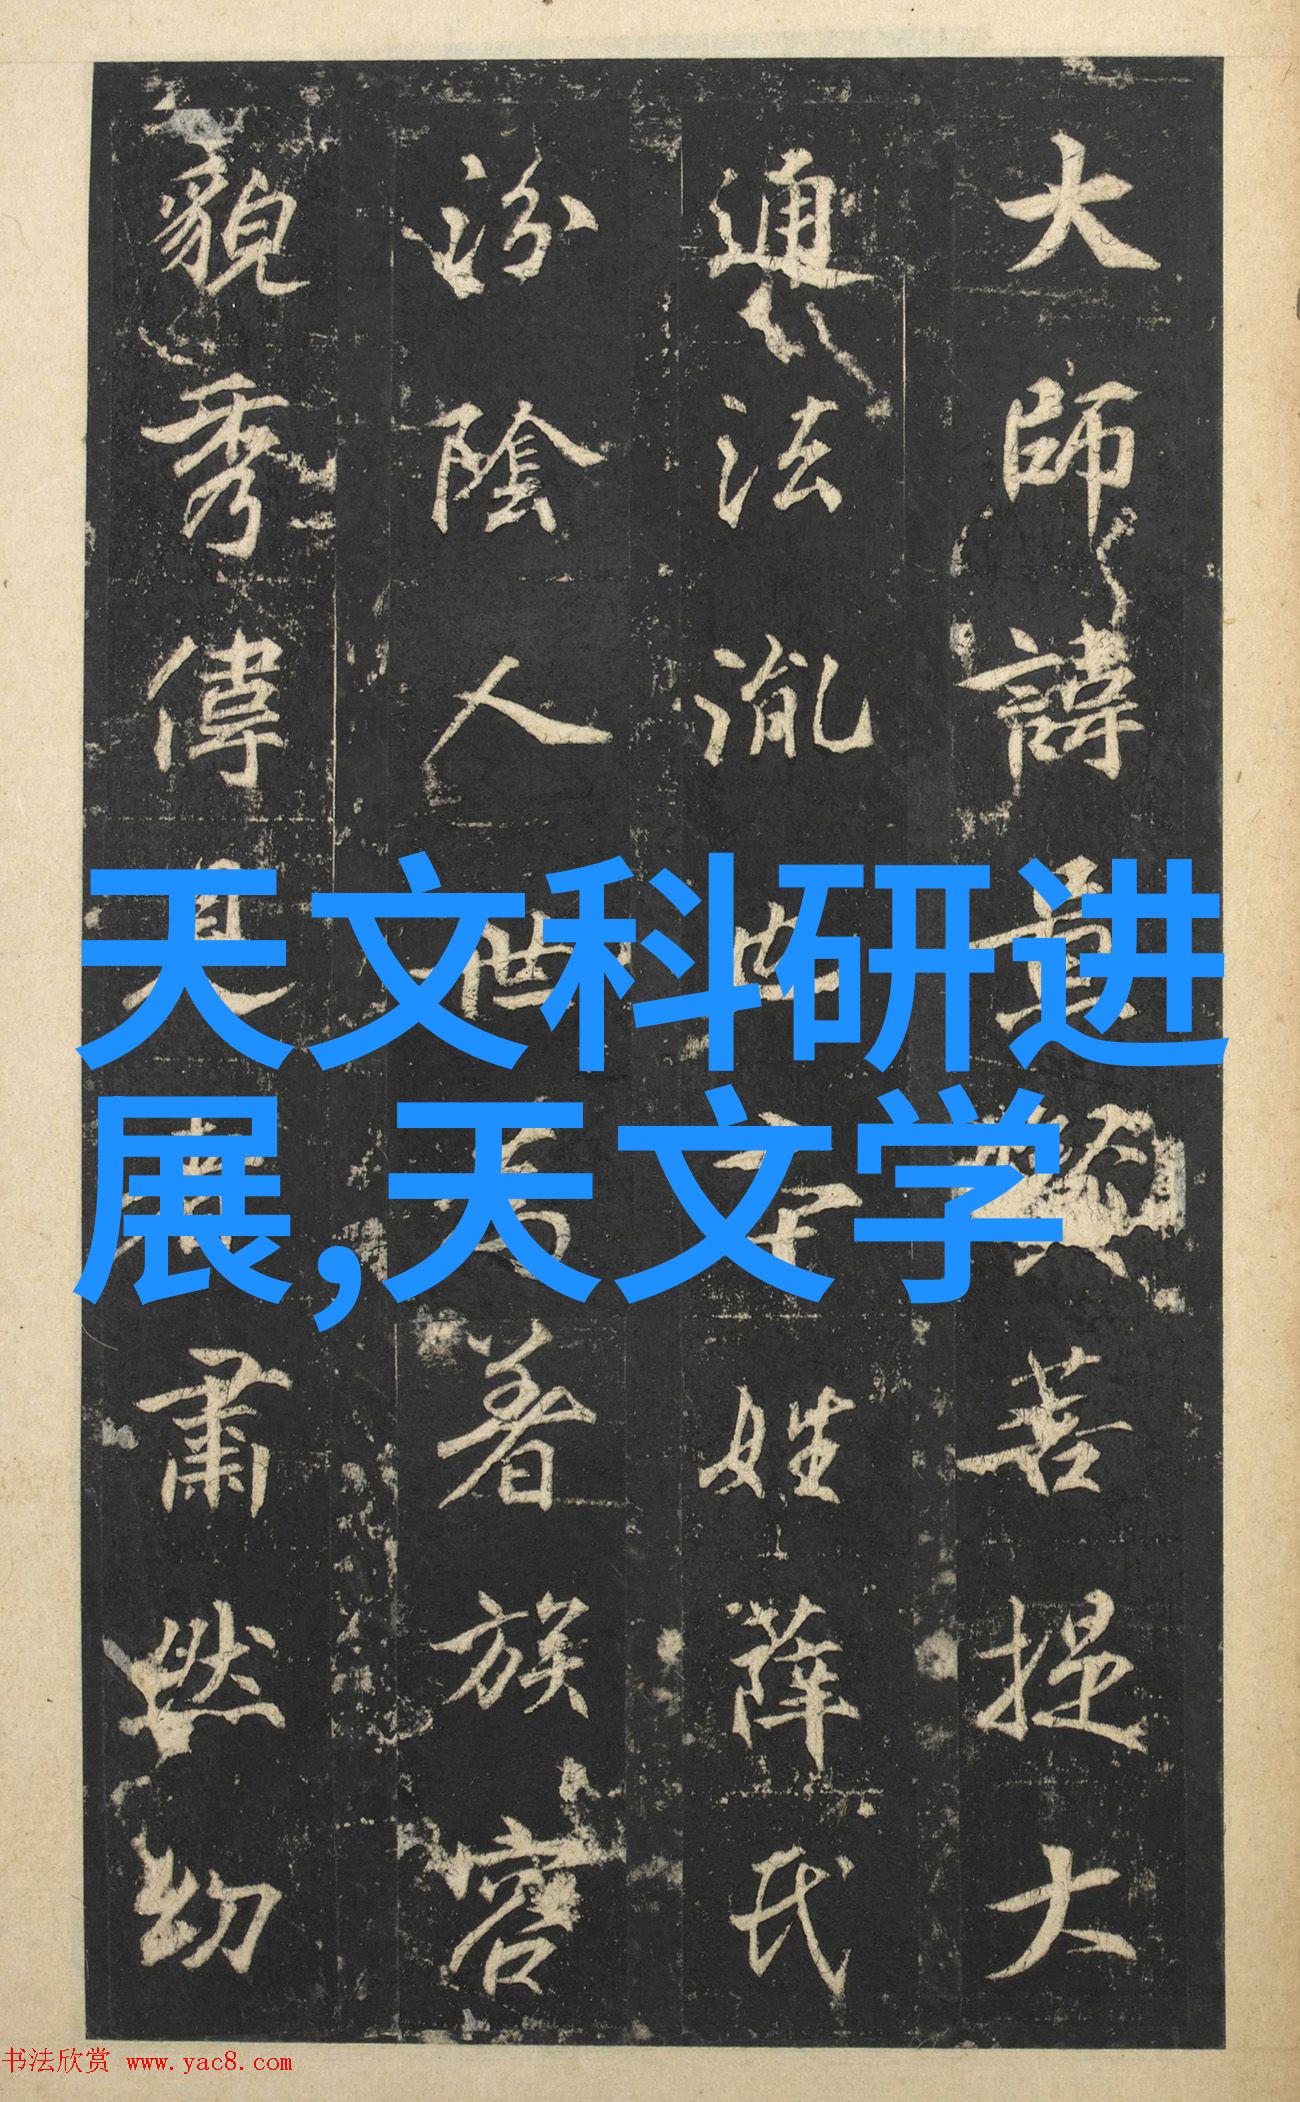 大師諱
菩提大
通法胤
姓薛氏
汾陰人世
著族容
貌秀偉
肅然幼
天文科研进
展,天文学
书法欣赏 www.yac8.com